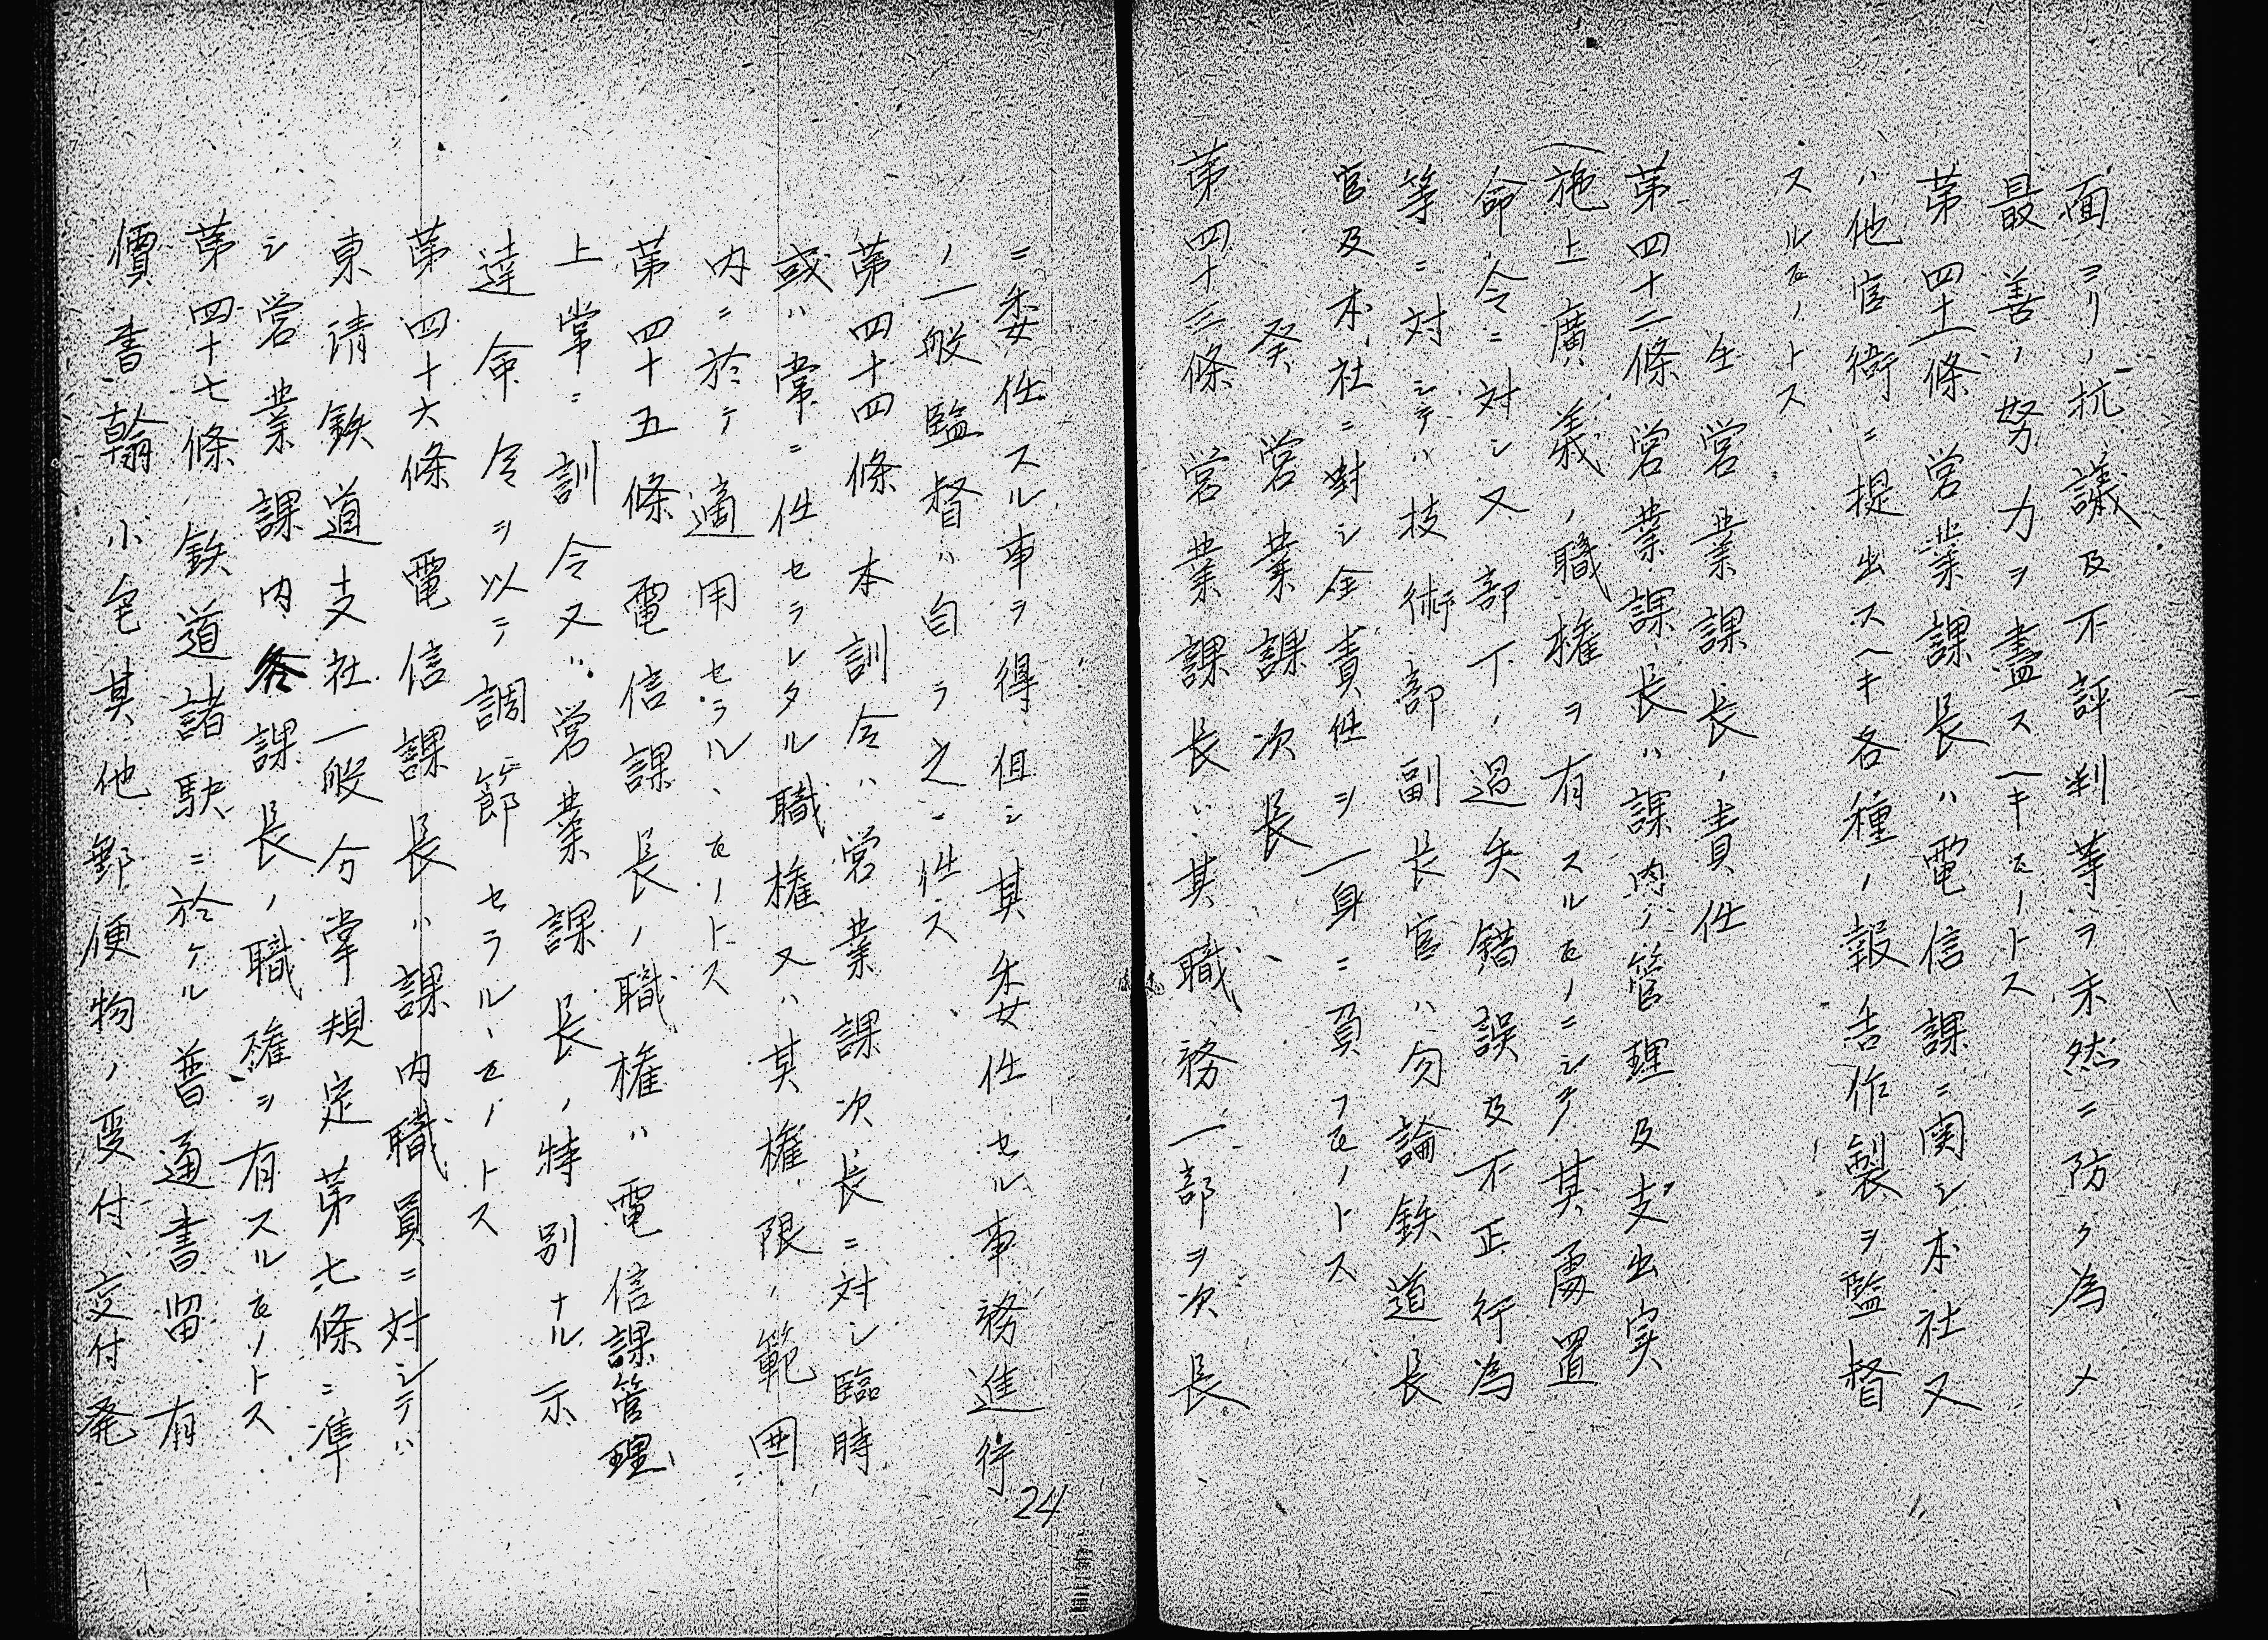 面ヨリノ抗議及不評判等ヲ未然ニ防ク為メ
最善ノ努力ヲ盡スヘキモノトス
第四十一條 営業課長ハ電信課ニ関シ本社又
ハ他官衙ニ提出スヘキ各種ノ報告作製ヲ監督
スルモノトス
壬 営業課長ノ責任
第四十二條 営業課長ハ課内ノ管理及支出実
施上廣義ノ職権ヲ有スルモノニシテ其處置
命令ニ対シ又部下ノ過失錯誤及不正行為
等ニ対シテハ技術部副長官ハ勿論鉄道長
官及本社ニ對シ全責任ヲ一身ニ負フモノトス
癸 営業課次長
第四十三條 営業課長ハ其職務一部ヲ次長
ニ委任スル事ヲ得但シ其委任セル事務進行
ノ一般監督ハ自ラ之ニ任ス
第四十四條 本訓令ハ営業課次長ニ対シ臨時
或ハ常ニ任セラレタル職権又ハ其権限ノ範囲
内ニ於テ適用セラルヽモノトス
第四十五條 電信課長ノ職権ハ電信課管理
上常ニ訓令又ハ営業課長ノ特別ナル示
達命令ヲ以テ調節セラルヽモノトス
第四十六條 電信課長ハ課内職員ニ対シテハ
東清鉄道支社一般分掌規定第七條ニ準
シ営業課内各課長ノ職権ヲ有スルモノトス
第四十七條 鉄道諸駅ニ於ケル普通書留有
價書翰小包其他郵便物ノ受付、交付、発
24